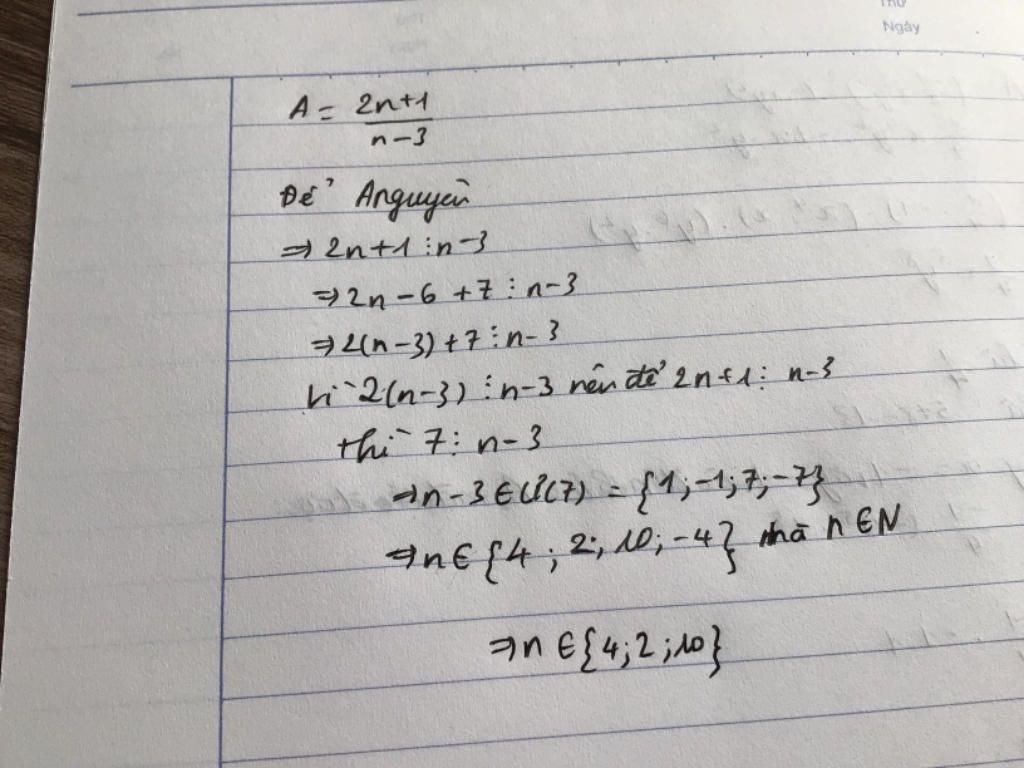 Thứ
Ngày
A = \frac{2n+1}{n-3}
Để A nguyên
⇒ 2n+1 ⋮ n-3
⇒ 2n - 6 + 7 ⋮ n-3
⇒ 2(n-3) + 7 ⋮ n-3
Vì 2(n-3) ⋮ n-3 nên để 2n+1 ⋮ n-3
thì 7 ⋮ n-3
⇒ n-3 ∈ Ư(7) = {1; -1; 7; -7}
⇒ n ∈ {4; 2; 10; -4} mà n ∈ N
⇒ n ∈ {4; 2; 10}